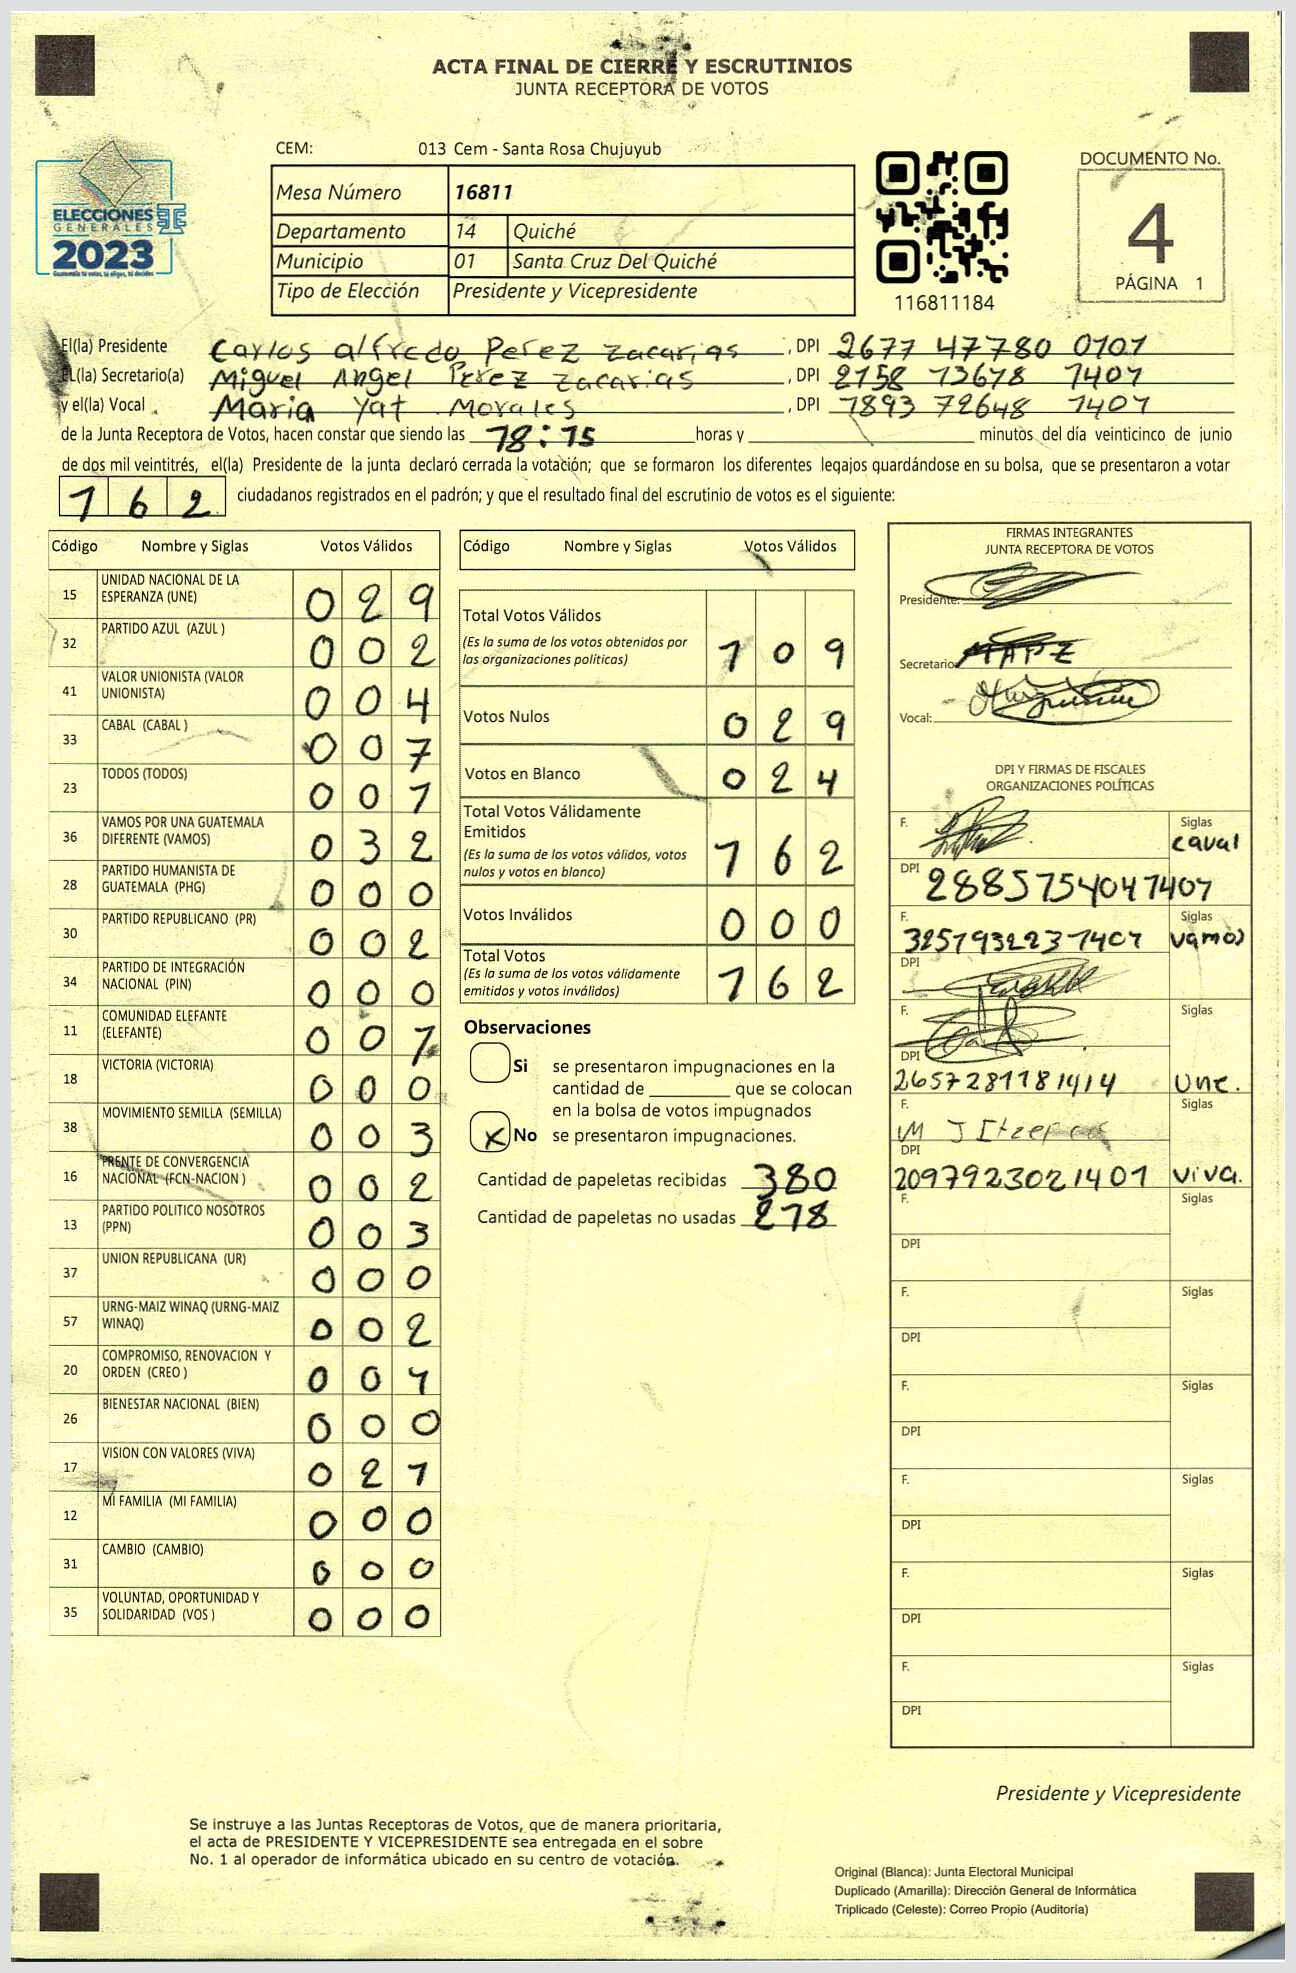 ACTA FINAL DE CIERRE Y ESCRUTINIOS
JUNTA RECEPTORA DE VOTOS
CEM: 013 Cem - Santa Rosa Chujuyub
Mesa Número 16811
Departamento 14 Quiché
Municipio 01 Santa Cruz Del Quiché
Tipo de Elección Presidente y Vicepresidente
116811184
DOCUMENTO No.
4
PÁGINA 1
ELECCIONES
GENERALES
2023
Guatemala tú votas, tú eliges, tú decides
El(la) Presidente Carlos alfredo Perez zacarias, DPI 2677 47780 0101
EL(la) Secretario(a) Miguel Angel Perez zacarias, DPI 2158 13678 1401
y el(la) Vocal Maria Yat Morales, DPI 1893 72648 1401
de la Junta Receptora de Votos, hacen constar que siendo las 18:15 horas y minutos del día veinticinco de junio
de dos mil veintitrés, el(la) Presidente de la junta declaró cerrada la votación; que se formaron los diferentes legajos guardándose en su bolsa, que se presentaron a votar
162 ciudadanos registrados en el padrón; y que el resultado final del escrutinio de votos es el siguiente:
Código Nombre y Siglas Votos Válidos
15 UNIDAD NACIONAL DE LA
ESPERANZA (UNE) 029
32 PARTIDO AZUL (AZUL ) 002
41 VALOR UNIONISTA (VALOR
UNIONISTA) 004
33 CABAL (CABAL ) 007
23 TODOS (TODOS) 001
36 VAMOS POR UNA GUATEMALA
DIFERENTE (VAMOS) 032
28 PARTIDO HUMANISTA DE
GUATEMALA (PHG) 000
30 PARTIDO REPUBLICANO (PR) 002
34 PARTIDO DE INTEGRACIÓN
NACIONAL (PIN) 000
11 COMUNIDAD ELEFANTE
(ELEFANTE) 001
18 VICTORIA (VICTORIA) 000
38 MOVIMIENTO SEMILLA (SEMILLA) 003
16 FRENTE DE CONVERGENCIA
NACIONAL (FCN-NACION ) 002
13 PARTIDO POLITICO NOSOTROS
(PPN) 003
37 UNION REPUBLICANA (UR) 000
57 URNG-MAIZ WINAQ (URNG-MAIZ
WINAQ) 002
20 COMPROMISO, RENOVACION Y
ORDEN (CREO ) 001
26 BIENESTAR NACIONAL (BIEN) 000
17 VISION CON VALORES (VIVA) 021
12 MI FAMILIA (MI FAMILIA) 000
31 CAMBIO (CAMBIO) 000
35 VOLUNTAD, OPORTUNIDAD Y
SOLIDARIDAD (VOS ) 000
Código Nombre y Siglas Votos Válidos
Total Votos Válidos
(Es la suma de los votos obtenidos por
las organizaciones políticas) 109
Votos Nulos 029
Votos en Blanco 024
Total Votos Válidamente
Emitidos
(Es la suma de los votos válidos, votos
nulos y votos en blanco) 162
Votos Inválidos 000
Total Votos
(Es la suma de los votos válidamente
emitidos y votos inválidos) 162
Observaciones
Si se presentaron impugnaciones en la
cantidad de que se colocan
en la bolsa de votos impugnados
X No se presentaron impugnaciones.
Cantidad de papeletas recibidas 380
Cantidad de papeletas no usadas 218
FIRMAS INTEGRANTES
JUNTA RECEPTORA DE VOTOS
Presidente:
Secretario: MAPZ
Vocal:
DPI Y FIRMAS DE FISCALES
ORGANIZACIONES POLÍTICAS
F. Siglas
caval
DPI 2885754041401
F. Siglas
3251932231401 vamos
DPI
F. Siglas
DPI
2657281181414 Une.
F. Siglas
DPI
2097923021401 viva.
F. Siglas
DPI
F. Siglas
DPI
F. Siglas
DPI
F. Siglas
DPI
F. Siglas
DPI
F. Siglas
DPI
Presidente y Vicepresidente
Se instruye a las Juntas Receptoras de Votos, que de manera prioritaria,
el acta de PRESIDENTE Y VICEPRESIDENTE sea entregada en el sobre
No. 1 al operador de informática ubicado en su centro de votación.
Original (Blanca): Junta Electoral Municipal
Duplicado (Amarilla): Dirección General de Informática
Triplicado (Celeste): Correo Propio (Auditoría)